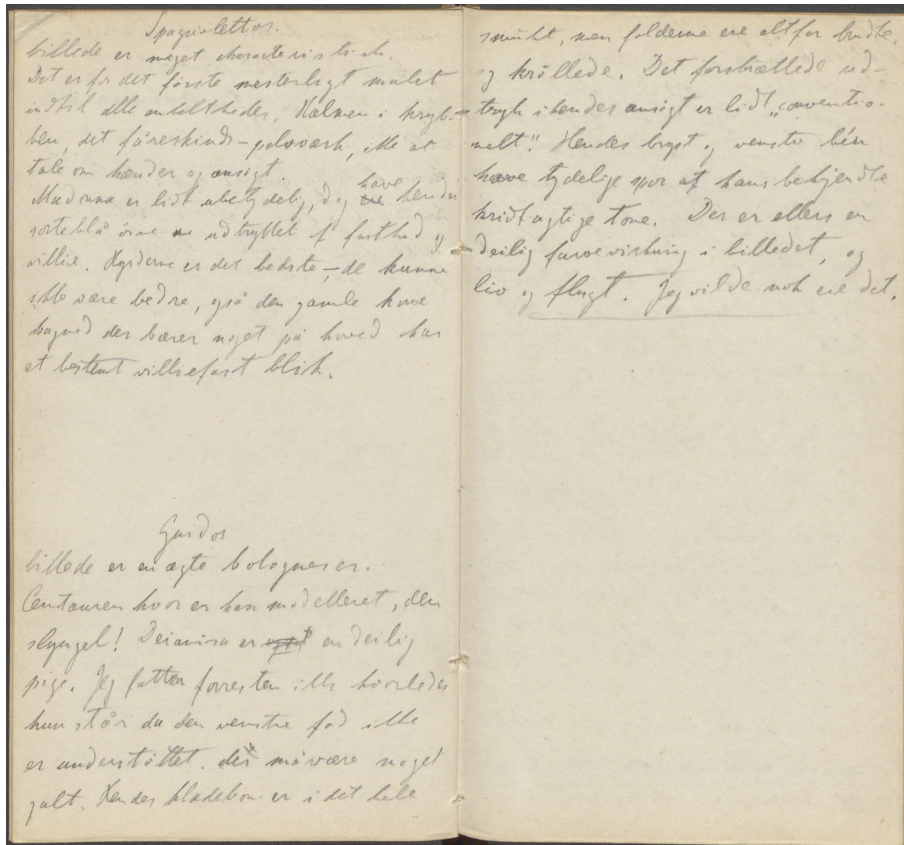 Spagnolettos.
billede er meget characteristisk.
Det er for det første mesterligt malet
indtil alle enkeltheder. Halmen i kryb-
ben, det fåreskinds-pelsværk, ikke at
tale om hænder og ansigt.
Madonna er lidt ubetydelig, dog have hendes
sorteblå öine udtrykket af fasthed og
villie. Hyrderne er det bedste, – de kunne
ikke være bedre, også den gamle kone
bagved der bærer noget på hoved har
et bestemt villiefast blik.
Guidos
billede er en ægte bologneser.
Centauren hvor er han modelleret, den
slyngel! Deianira er en deilig
pige. Jeg fatter forresten ikke hvorledes
hun står da den venstre fod ikke
er understöttet. der må være noget
galt. Hendes klædebon er i det hele
smukt, men folderne ere altfor brudte
og kröllede. Det forskrækkede ud-
tryk i hendes ansigt er lidt „conventio-
nelt". Hendes bryst og venstre bén
have tydelige spor af hans bekjendte
kridtagtige tone. Der er ellers en
deilig farvevirkning i billedet, og
liv og flugt. Jeg vilde nok eie det.